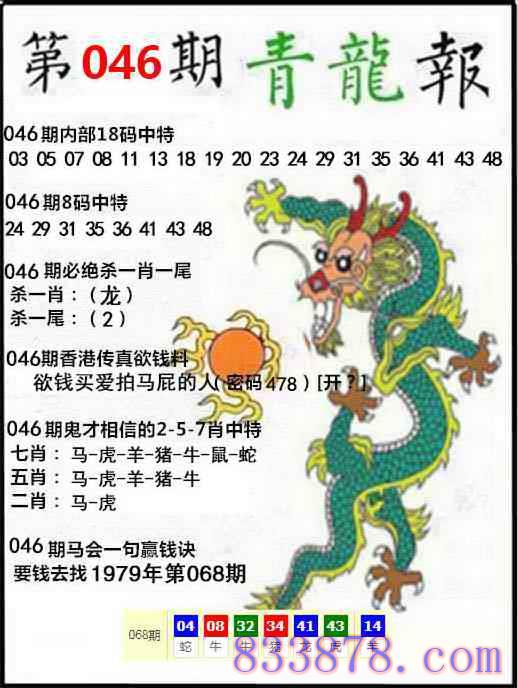 第046期青龍報
046期内部18码中特
03 05 07 08 11 13 18 19 20 23 24 29 31 35 36 41 43 48
046期8码中特
24 29 31 35 36 41 43 48
046期必绝杀一肖一尾
杀一肖：（龙）
杀一尾：（2）
046期香港传真欲钱料
欲钱买爱拍马屁的人（密码478）[开？]
046期鬼才相信的2-5-7肖中特
七肖：马-虎-羊-猪-牛-鼠-蛇
五肖：马-虎-羊-猪-牛
二肖：马-虎
046期马会一句赢钱诀
要钱去找1979年第068期
068期 04 08 32 34 41 43 14
蛇 牛 牛 猪 龙 虎 羊
833878.com